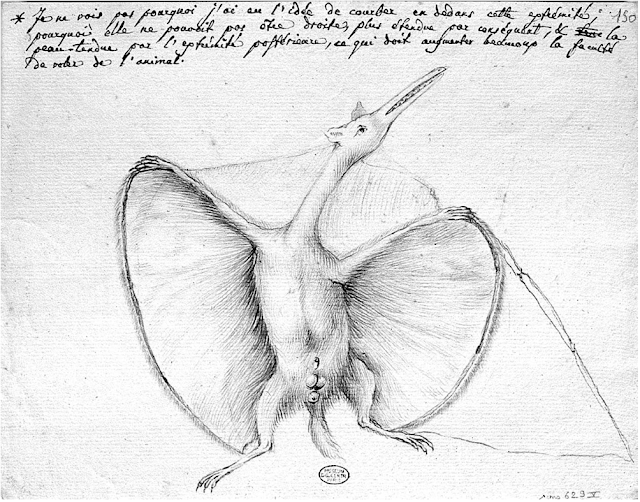 * Je ne vois pas pourquoi j'ai eu l'idée de courber en dedans cette extrémité;
pourquoi elle ne pouvoit pas être droite, plus étendue par conséquent, & la
peau tendue par l'extrémité postérieure, ce qui doit augmenter beaucoup la faculté
de voler de l'animal.
150
MUSEUM
PARIS
ms 629